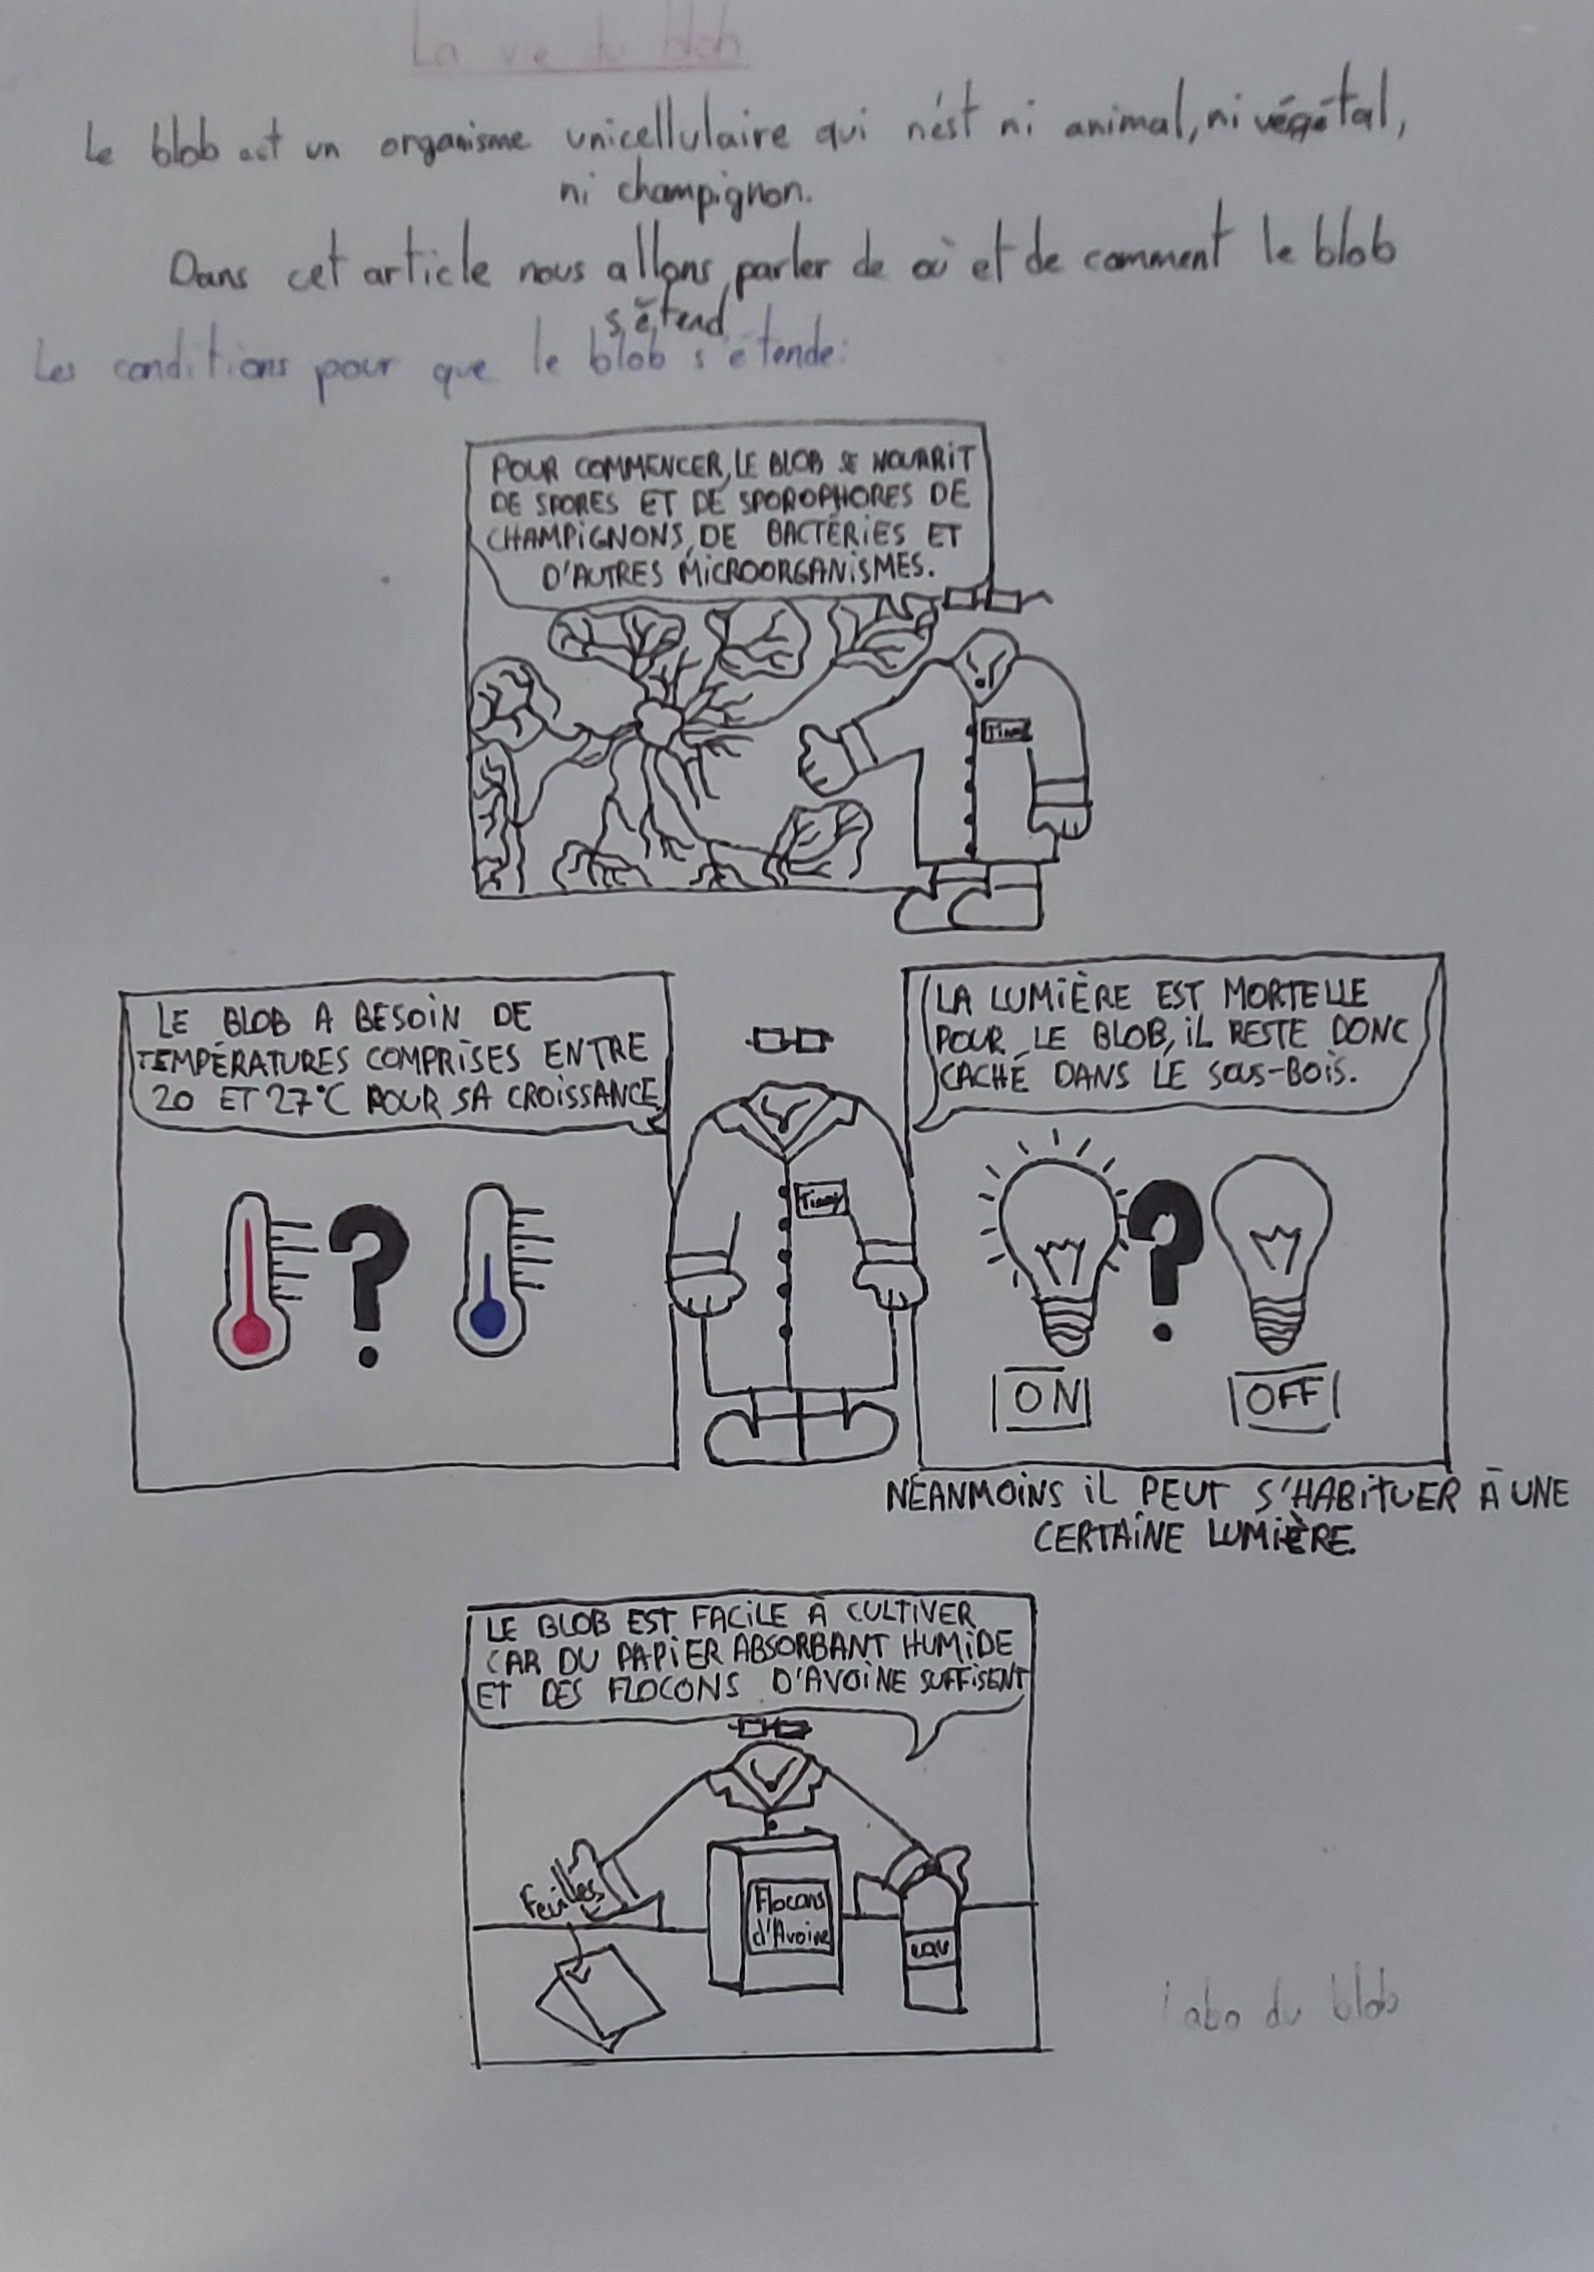 La vie du blob
Le blob est un organisme unicellulaire qui n'ést ni animal, ni végétal,
ni champignon.
Dans cet article nous allons parler de où et de comment le blob
s'étend
Les conditions pour que le blob s'étende:
POUR COMMENCER, LE BLOB SE NOURRIT
DE SPORES ET DE SPOROPHORES DE
CHAMPIGNONS, DE BACTÉRIES ET
D'AUTRES MICROORGANISMES.
LE BLOB A BESOIN DE
TEMPÉRATURES COMPRISES ENTRE
20 ET 27°C POUR SA CROISSANCE
Timmy
LA LUMIÈRE EST MORTELLE
POUR LE BLOB, IL RESTE DONC
CACHÉ DANS LE SOUS-BOIS.
?
?
ON
OFF
NÉANMOINS IL PEUT S'HABITUER À UNE
CERTAINE LUMIÈRE.
LE BLOB EST FACILE À CULTIVER
CAR DU PAPIER ABSORBANT HUMIDE
ET DES FLOCONS D'AVOINE SUFFISENT
Feuilles
Flocons
d'Avoine
eau
Labo du blob